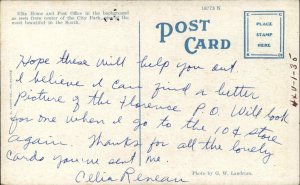 Elks Home and Post Office in the background
as seen from center of the City Park, one of the
most beautiful in the South.
18773 N
POST
CARD
PLACE
STAMP
HERE
Hope these will help you out.
I believe I can find a better
Picture of the Florence P.O. Will look
for one when I go to the 10¢ store
again. Thanks for all the lovely
cards you've sent me.
Celia Reneau
Photo by G. W. Landrum.